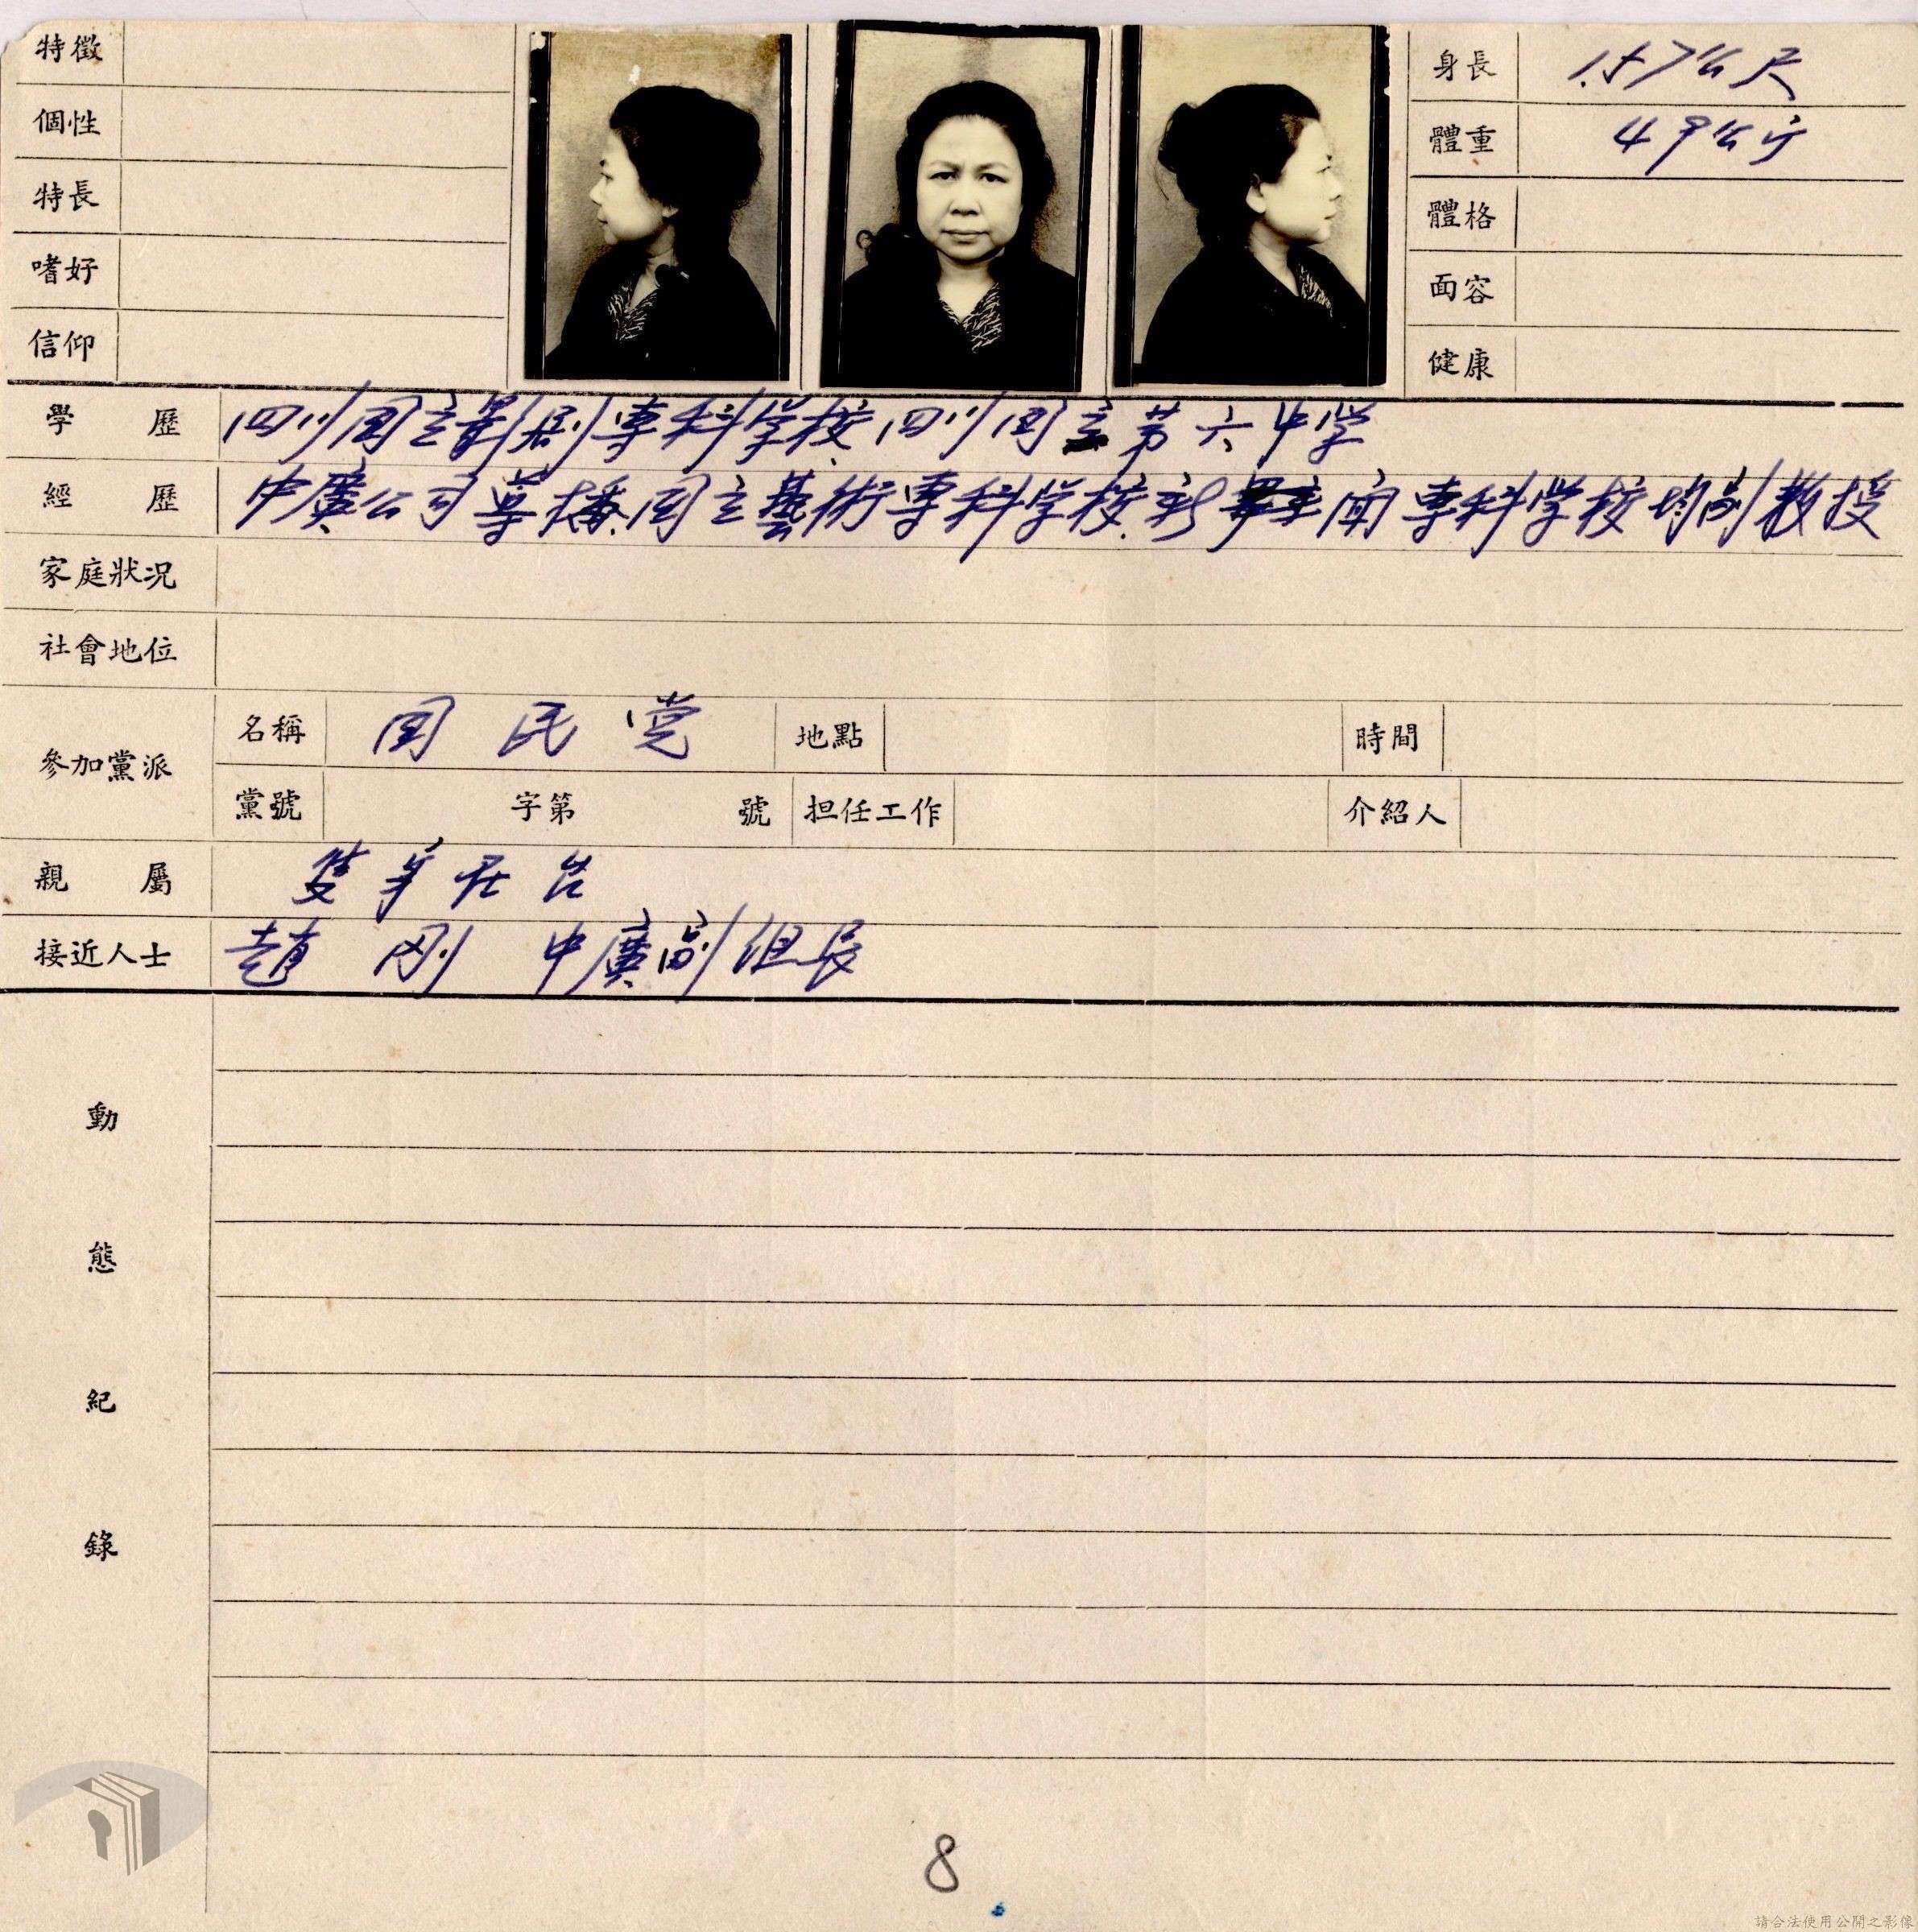 特徵
個性
特長
嗜好
信仰
身長 1.57公尺
體重 49公斤
體格
面容
健康
學歷 四川国立戲剧専科学校.四川国立第六中学
經歷 中廣公司導播.国立藝術専科学校.新聞専科学校均副教授
家庭狀况
社會地位
參加黨派 名稱 国民党 地點 時間
黨號 字第 號 担任工作 介紹人
親屬 隻身在台
接近人士 趙剛 中廣副组長
動態紀錄
8
請合法使用公開之影像